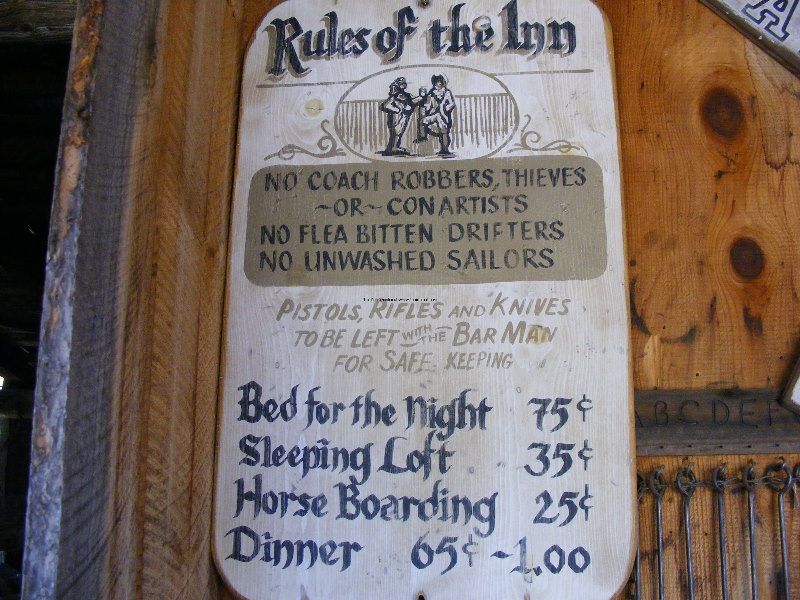 Rules of the Inn
NO COACH ROBBERS, THIEVES
~OR~ CON ARTISTS
NO FLEA BITTEN DRIFTERS
NO UNWASHED SAILORS
PISTOLS, RIFLES AND KNIVES
TO BE LEFT WITH THE BAR MAN
FOR SAFE KEEPING
Bed for the Night 75¢
Sleeping Loft 35¢
Horse Boarding 25¢
Dinner 65¢ - 1.00
A
ABCDEF